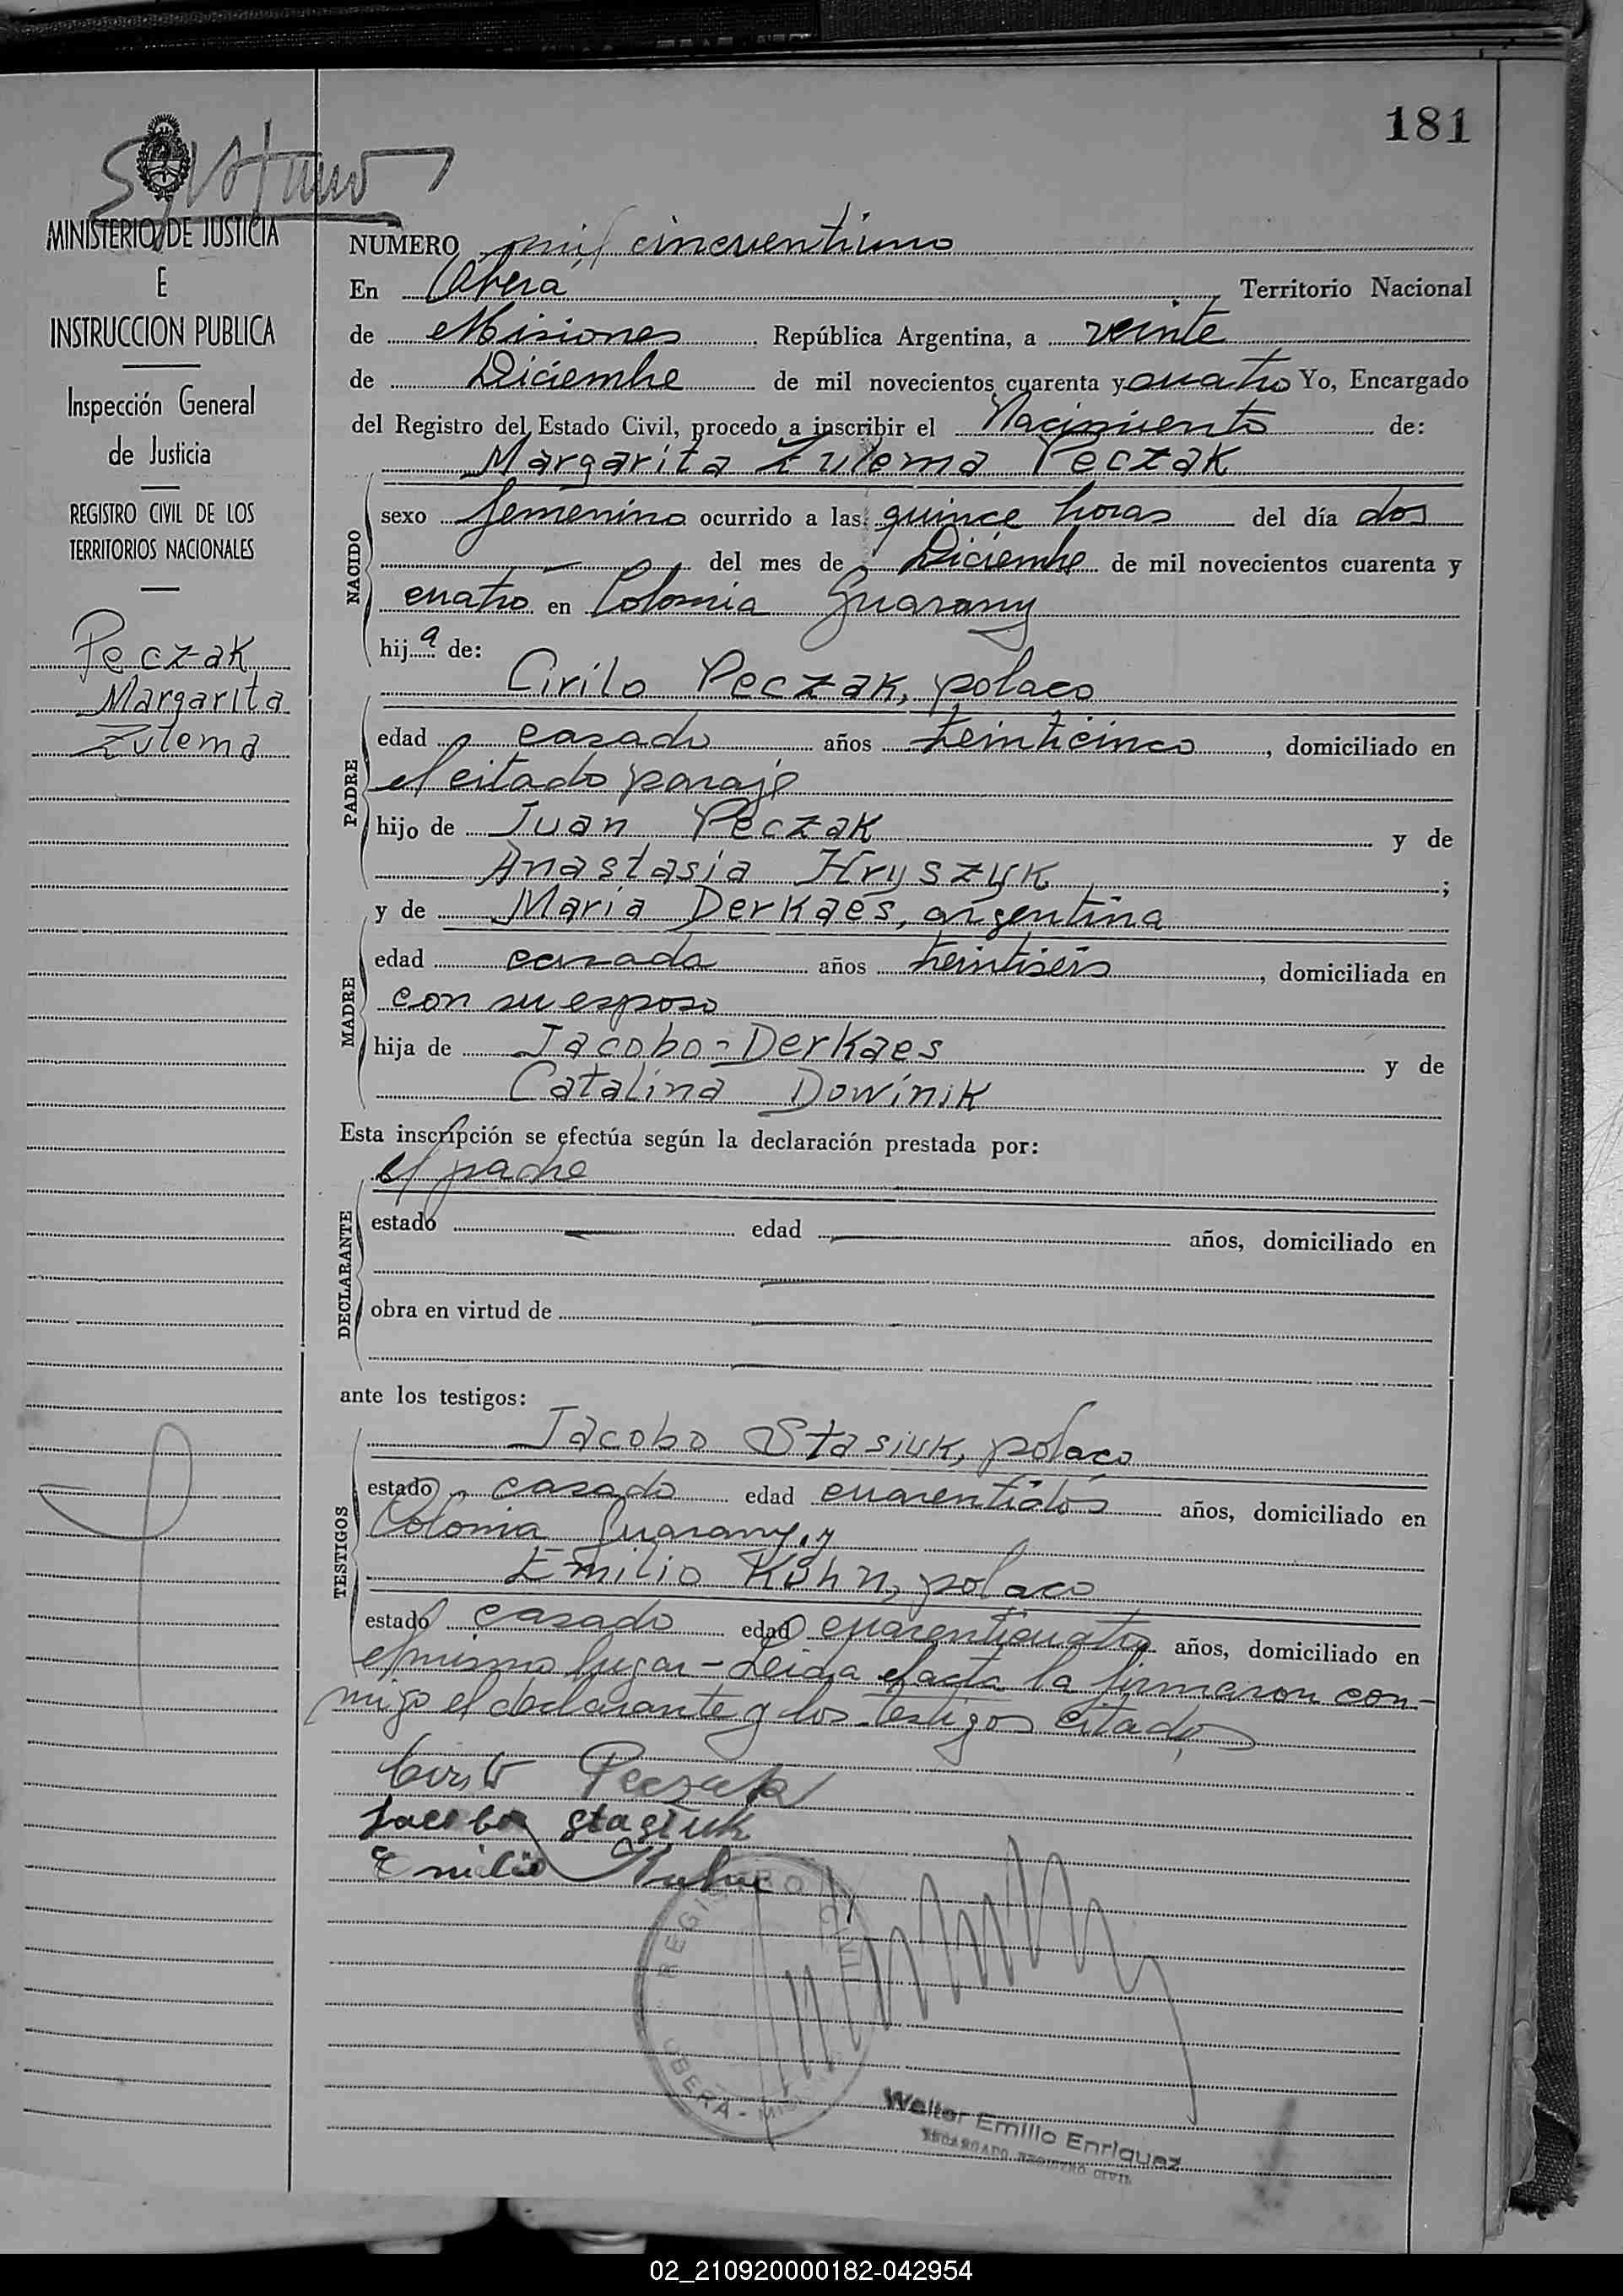 181
MINISTERIO DE JUSTICIA
E
INSTRUCCION PUBLICA
Inspección General
de Justicia
REGISTRO CIVIL DE LOS
TERRITORIOS NACIONALES
Peczak
Margarita
Zulema
NUMERO mil cincuentiuno
En Oberá Territorio Nacional
de Misiones República Argentina, a veinte
de Diciembre de mil novecientos cuarenta y cuatro Yo, Encargado
del Registro del Estado Civil, procedo a inscribir el Nacimiento de:
Margarita Zulema Peczak
NACIDO
sexo femenino ocurrido a las quince horas del día dos
del mes de Diciembre de mil novecientos cuarenta y
cuatro en Colonia Guarany
hija de:
Cirilo Peczak, polaco
PADRE
edad casado años treinticinco, domiciliado en
el citado paraje
hijo de Juan Peczak y de
Anastasia Hryszyk;
y de Maria Derkaes, argentina
MADRE
edad casada años treintiseis, domiciliada en
con su esposo
hija de Jacobo-Derkaes y de
Catalina Dowinik
Esta inscripción se efectúa según la declaración prestada por:
el padre
DECLARANTE
estado edad años, domiciliado en
obra en virtud de
ante los testigos:
TESTIGOS
Jacobo Stasiuk, polaco
estado casado edad cuarentidós años, domiciliado en
Colonia Guarany, y
Emilio Köhn, polaco
estado casado edad cuarenticuatro años, domiciliado en
el mismo lugar - Leida el acta la firmaron con-
migo el declarante y los testigos citados
Cirilo Peczak
Jacobo Stasiuk
Emilio Kuhn
REGISTRO CIVIL
OBERA - MISIONES
Walter Emilio Enriquez
ENCARGADO REGISTRO CIVIL
02_210920000182-042954